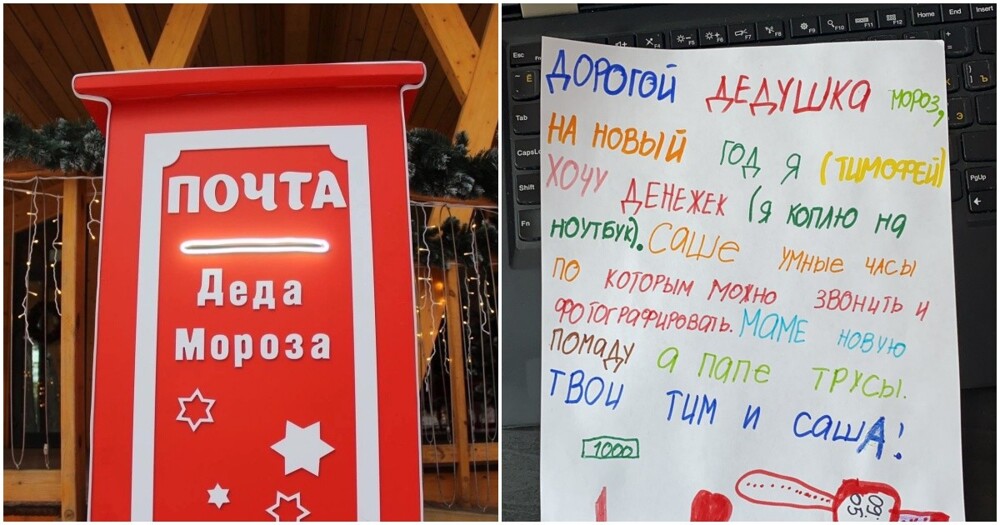 ПОЧТА
Деда
Мороза
ДОРОГОЙ ДЕДУШКА МОРОЗ,
НА НОВЫЙ ГОД Я (ТИМОФЕЙ)
ХОЧУ ДЕНЕЖЕК (Я КОПЛЮ НА
НОУТБУК). САШЕ УМНЫЕ ЧАСЫ
ПО КОТОРЫМ МОЖНО ЗВОНИТЬ И
ФОТОГРАФИРОВАТЬ. МАМЕ НОВУЮ
ПОМАДУ А ПАПЕ ТРУСЫ.
ТВОИ ТИМ И САША!
1000
Esc
Tab
CapsLo
Shift
Fn
F4
F5
F6
F7
F8
F9
F10
F11
F12
Home
End
Insert
PgUp